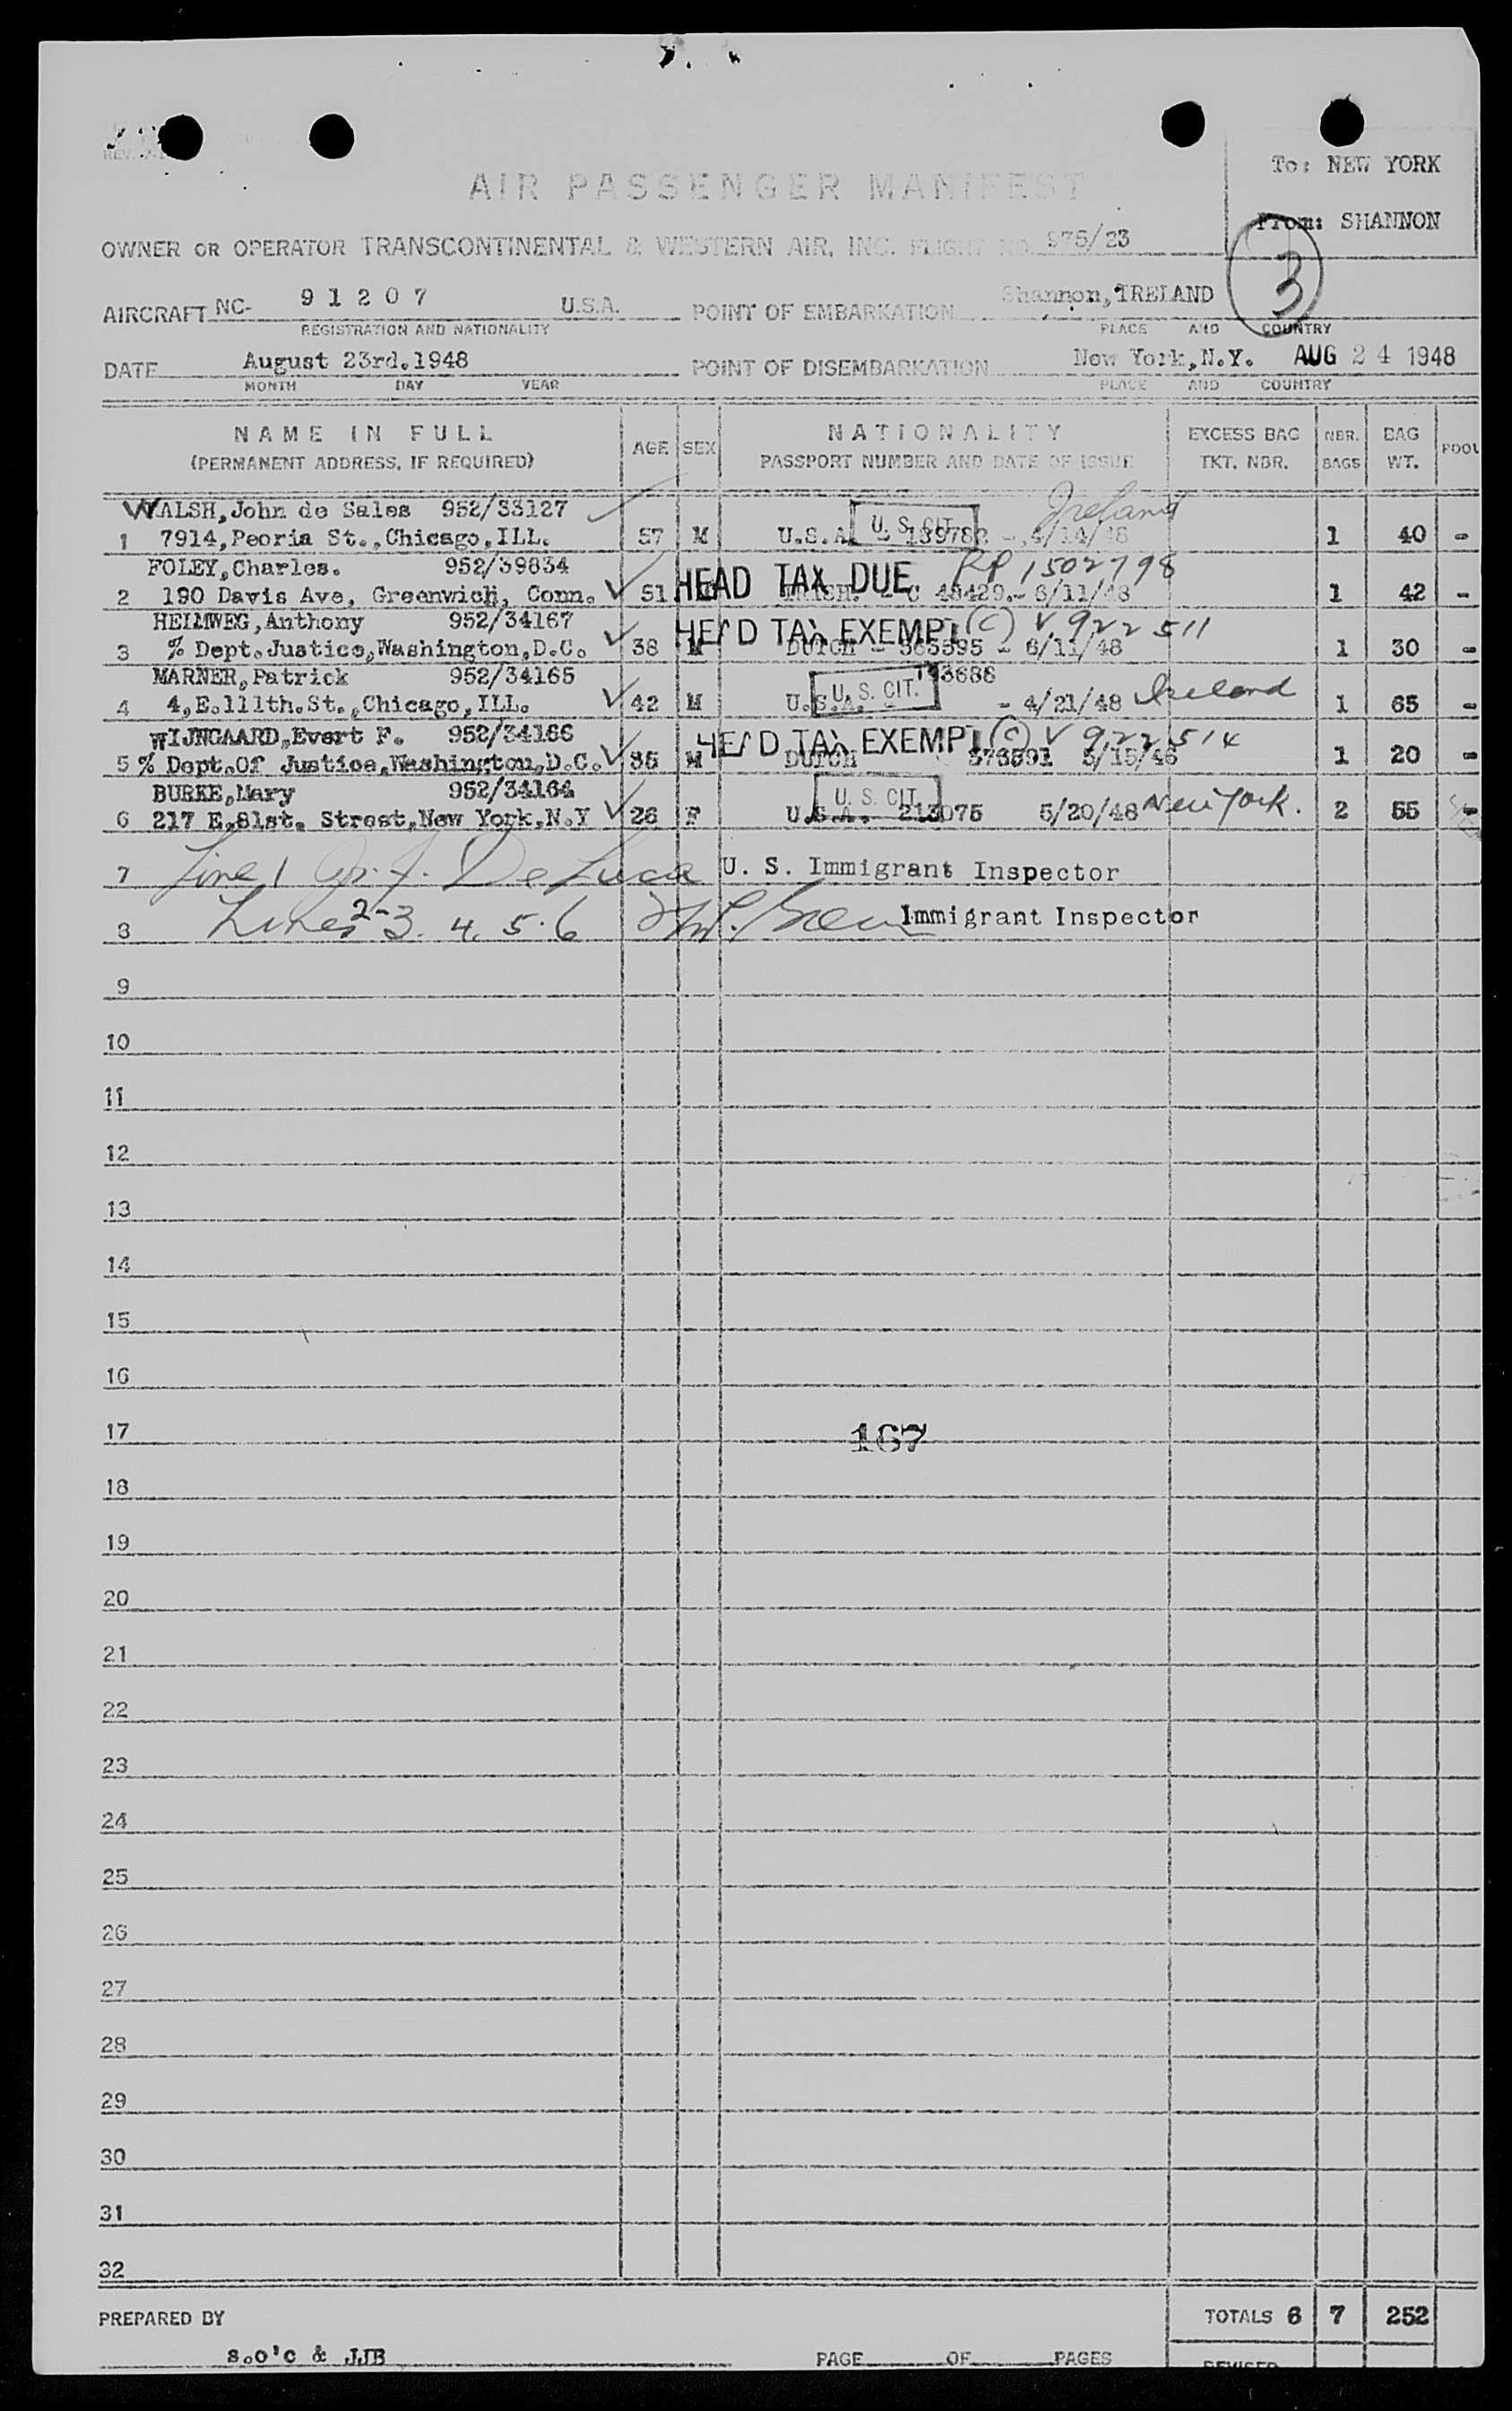 To: NEW YORK
From: SHANNON
3
AIR PASSENGER MANIFEST
OWNER OR OPERATOR TRANSCONTINENTAL & WESTERN AIR, INC. FLIGHT NO. 975/23
AIRCRAFT NC- 91207 U.S.A. POINT OF EMBARKATION Shannon, IRELAND
REGISTRATION AND NATIONALITY PLACE AND COUNTRY
DATE August 23rd.1948 POINT OF DISEMBARKATION New York,N.Y. AUG 24 1948
MONTH DAY YEAR PLACE AND COUNTRY
NAME IN FULL AGE SEX NATIONALITY EXCESS BAG NBR. BAG POOL
(PERMANENT ADDRESS, IF REQUIRED) PASSPORT NUMBER AND DATE OF ISSUE TKT. NBR. BAGS WT.
WALSH,John de Sales 952/33127 Ireland
1 7914,Peoria St.,Chicago,ILL. 57 M U.S.A. U. S. CIT. - 4/14/48 1 40 -
FOLEY,Charles. 952/39834 HEAD TAX DUE RP 1502798
2 190 Davis Ave, Greenwich, Conn. 51 C 48429.- 6/11/48 1 42 -
HEIMWEG,Anthony 952/34167 HEAD TAX EXEMPT (C) V 922511
3 % Dept.Justice,Washington,D.C. 38 M DUTCH - 363595 - 6/11/48 1 30 -
MARNER,Patrick 952/34165 193688
4 4,E.111th.St.,Chicago,ILL. 42 M U.S.A. - U. S. CIT. - 4/21/48 Ireland 1 65 -
WIJNGAARD,Evert F. 952/34166 HEAD TAX EXEMPT (C) V 922514
5 % Dept.Of Justice,Washington,D.C. 35 M DUTCH 376591 5/15/46 1 20 -
BURKE,Mary 952/34164 U. S. CIT.
6 217 E,81st. Street,New York,N.Y 26 F U.S.A. 213075 5/20/48 New York. 2 55 -
7 Line 1 De Luca U. S. Immigrant Inspector
8 Lines 2-3. 4. 5. 6 Immigrant Inspector
9
10
11
12
13
14
15
16
17 167
18
19
20
21
22
23
24
25
26
27
28
29
30
31
32
PREPARED BY TOTALS 6 7 252
S.O'C & JJB PAGE OF PAGES REVISED